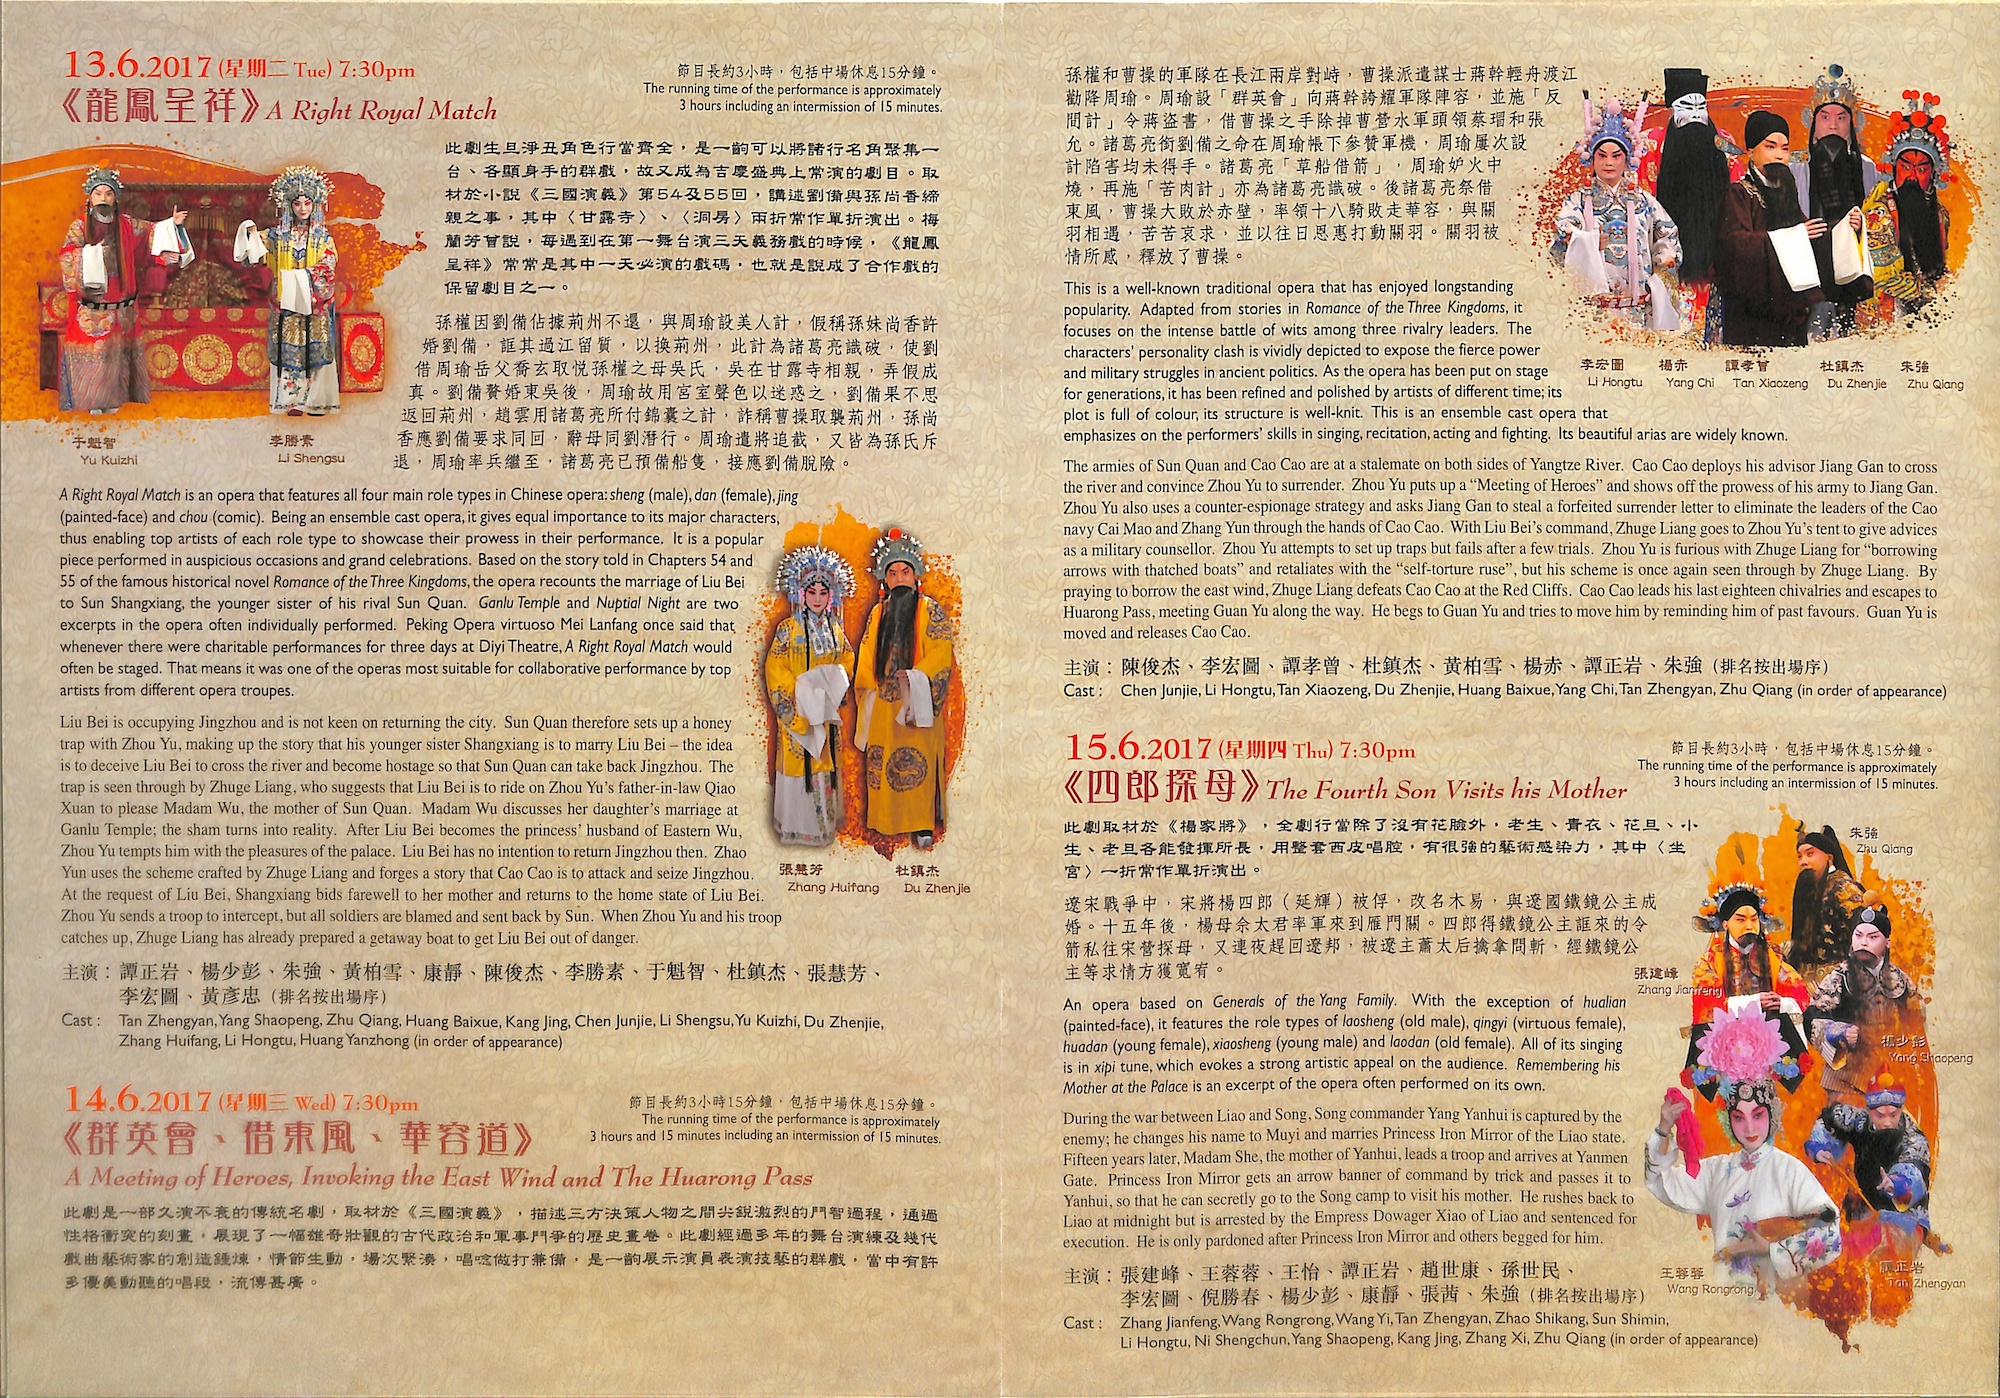 13.6.2017 (星期二 Tue) 7:30pm
《龍鳳呈祥》A Right Royal Match
節目長約3小時，包括中場休息15分鐘。
The running time of the performance is approximately
3 hours including an intermission of 15 minutes.
此劇生旦淨丑角色行當齊全，是一齣可以將諸行名角聚集一
台、各顯身手的群戲，故又成為吉慶盛典上常演的劇目。取
材於小說《三國演義》第54及55回，講述劉備與孫尚香締
親之事，其中〈甘露寺〉、〈洞房〉兩折常作單折演出。梅
蘭芳曾說，每遇到在第一舞台演三天義務戲的時候，《龍鳳
呈祥》常常是其中一天必演的戲碼，也就是說成了合作戲的
保留劇目之一。
孫權因劉備佔據荊州不還，與周瑜設美人計，假稱孫妹尚香許
婚劉備，誆其過江留質，以換荊州，此計為諸葛亮識破，使劉
借周瑜岳父喬玄取悅孫權之母吳氏，吳在甘露寺相親，弄假成
真。劉備贅婚東吳後，周瑜故用宮室聲色以迷惑之，劉備果不思
返回荊州，趙雲用諸葛亮所付錦囊之計，詐稱曹操取襲荊州，孫尚
香應劉備要求同回，辭母同劉潛行。周瑜遣將追截，又皆為孫氏斥
退，周瑜率兵繼至，諸葛亮已預備船隻，接應劉備脫險。
于魁智
Yu Kuizhi
李勝素
Li Shengsu
A Right Royal Match is an opera that features all four main role types in Chinese opera: sheng (male), dan (female), jing
(painted-face) and chou (comic). Being an ensemble cast opera, it gives equal importance to its major characters,
thus enabling top artists of each role type to showcase their prowess in their performance. It is a popular
piece performed in auspicious occasions and grand celebrations. Based on the story told in Chapters 54 and
55 of the famous historical novel Romance of the Three Kingdoms, the opera recounts the marriage of Liu Bei
to Sun Shangxiang, the younger sister of his rival Sun Quan. Ganlu Temple and Nuptial Night are two
excerpts in the opera often individually performed. Peking Opera virtuoso Mei Lanfang once said that
whenever there were charitable performances for three days at Diyi Theatre, A Right Royal Match would
often be staged. That means it was one of the operas most suitable for collaborative performance by top
artists from different opera troupes.
Liu Bei is occupying Jingzhou and is not keen on returning the city. Sun Quan therefore sets up a honey
trap with Zhou Yu, making up the story that his younger sister Shangxiang is to marry Liu Bei – the idea
is to deceive Liu Bei to cross the river and become hostage so that Sun Quan can take back Jingzhou. The
trap is seen through by Zhuge Liang, who suggests that Liu Bei is to ride on Zhou Yu's father-in-law Qiao
Xuan to please Madam Wu, the mother of Sun Quan. Madam Wu discusses her daughter's marriage at
Ganlu Temple; the sham turns into reality. After Liu Bei becomes the princess' husband of Eastern Wu,
Zhou Yu tempts him with the pleasures of the palace. Liu Bei has no intention to return Jingzhou then. Zhao
Yun uses the scheme crafted by Zhuge Liang and forges a story that Cao Cao is to attack and seize Jingzhou.
At the request of Liu Bei, Shangxiang bids farewell to her mother and returns to the home state of Liu Bei.
Zhou Yu sends a troop to intercept, but all soldiers are blamed and sent back by Sun. When Zhou Yu and his troop
catches up, Zhuge Liang has already prepared a getaway boat to get Liu Bei out of danger.
張慧芳
Zhang Huifang
杜鎮杰
Du Zhenjie
主演：譚正岩、楊少彭、朱強、黃柏雪、康靜、陳俊杰、李勝素、于魁智、杜鎮杰、張慧芳、
李宏圖、黃彥忠（排名按出場序）
Cast : Tan Zhengyan, Yang Shaopeng, Zhu Qiang, Huang Baixue, Kang Jing, Chen Junjie, Li Shengsu, Yu Kuizhi, Du Zhenjie,
Zhang Huifang, Li Hongtu, Huang Yanzhong (in order of appearance)
14.6.2017 (星期三 Wed) 7:30pm
《群英會、借東風、華容道》
A Meeting of Heroes, Invoking the East Wind and The Huarong Pass
節目長約3小時15分鐘，包括中場休息15分鐘。
The running time of the performance is approximately
3 hours and 15 minutes including an intermission of 15 minutes.
此劇是一部久演不衰的傳統名劇，取材於《三國演義》，描述三方決策人物之間尖銳激烈的鬥智過程，通過
性格衝突的刻畫，展現了一幅雄奇壯觀的古代政治和軍事鬥爭的歷史畫卷。此劇經過多年的舞台演練及幾代
戲曲藝術家的創造錘煉，情節生動，場次緊湊，唱唸做打兼備，是一齣展示演員表演技藝的群戲，當中有許
多優美動聽的唱段，流傳甚廣。
孫權和曹操的軍隊在長江兩岸對峙，曹操派遣謀士蔣幹輕舟渡江
勸降周瑜。周瑜設「群英會」向蔣幹誇耀軍隊陣容，並施「反
間計」令蔣盜書，借曹操之手除掉曹營水軍頭領蔡瑁和張
允。諸葛亮銜劉備之命在周瑜帳下參贊軍機，周瑜屢次設
計陷害均未得手。諸葛亮「草船借箭」，周瑜妒火中
燒，再施「苦肉計」亦為諸葛亮識破。後諸葛亮祭借
東風，曹操大敗於赤壁，率領十八騎敗走華容，與關
羽相遇，苦苦哀求，並以往日恩惠打動關羽。關羽被
情所感，釋放了曹操。
李宏圖
Li Hongtu
楊赤
Yang Chi
譚孝曾
Tan Xiaozeng
杜鎮杰
Du Zhenjie
朱強
Zhu Qiang
This is a well-known traditional opera that has enjoyed longstanding
popularity. Adapted from stories in Romance of the Three Kingdoms, it
focuses on the intense battle of wits among three rivalry leaders. The
characters' personality clash is vividly depicted to expose the fierce power
and military struggles in ancient politics. As the opera has been put on stage
for generations, it has been refined and polished by artists of different time; its
plot is full of colour, its structure is well-knit. This is an ensemble cast opera that
emphasizes on the performers' skills in singing, recitation, acting and fighting. Its beautiful arias are widely known.
The armies of Sun Quan and Cao Cao are at a stalemate on both sides of Yangtze River. Cao Cao deploys his advisor Jiang Gan to cross
the river and convince Zhou Yu to surrender. Zhou Yu puts up a "Meeting of Heroes" and shows off the prowess of his army to Jiang Gan.
Zhou Yu also uses a counter-espionage strategy and asks Jiang Gan to steal a forfeited surrender letter to eliminate the leaders of the Cao
navy Cai Mao and Zhang Yun through the hands of Cao Cao. With Liu Bei's command, Zhuge Liang goes to Zhou Yu's tent to give advices
as a military counsellor. Zhou Yu attempts to set up traps but fails after a few trials. Zhou Yu is furious with Zhuge Liang for "borrowing
arrows with thatched boats" and retaliates with the "self-torture ruse", but his scheme is once again seen through by Zhuge Liang. By
praying to borrow the east wind, Zhuge Liang defeats Cao Cao at the Red Cliffs. Cao Cao leads his last eighteen chivalries and escapes to
Huarong Pass, meeting Guan Yu along the way. He begs to Guan Yu and tries to move him by reminding him of past favours. Guan Yu is
moved and releases Cao Cao.
主演：陳俊杰、李宏圖、譚孝曾、杜鎮杰、黃柏雪、楊赤、譚正岩、朱強（排名按出場序）
Cast : Chen Junjie, Li Hongtu, Tan Xiaozeng, Du Zhenjie, Huang Baixue, Yang Chi, Tan Zhengyan, Zhu Qiang (in order of appearance)
15.6.2017 (星期四 Thu) 7:30pm
《四郎探母》The Fourth Son Visits his Mother
節目長約3小時，包括中場休息15分鐘。
The running time of the performance is approximately
3 hours including an intermission of 15 minutes.
此劇取材於《楊家將》，全劇行當除了沒有花臉外，老生、青衣、花旦、小
生、老旦各能發揮所長，用整套西皮唱腔，有很強的藝術感染力，其中〈坐
宮〉一折常作單折演出。
遼宋戰爭中，宋將楊四郎（延輝）被俘，改名木易，與遼國鐵鏡公主成
婚。十五年後，楊母佘太君率軍來到雁門關。四郎得鐵鏡公主誆來的令
箭私往宋營探母，又連夜趕回遼邦，被遼主蕭太后擒拿問斬，經鐵鏡公
主等求情方獲寬宥。
An opera based on Generals of the Yang Family. With the exception of hualian
(painted-face), it features the role types of laosheng (old male), qingyi (virtuous female),
huadan (young female), xiaosheng (young male) and laodan (old female). All of its singing
is in xipi tune, which evokes a strong artistic appeal on the audience. Remembering his
Mother at the Palace is an excerpt of the opera often performed on its own.
During the war between Liao and Song, Song commander Yang Yanhui is captured by the
enemy; he changes his name to Muyi and marries Princess Iron Mirror of the Liao state.
Fifteen years later, Madam She, the mother of Yanhui, leads a troop and arrives at Yanmen
Gate. Princess Iron Mirror gets an arrow banner of command by trick and passes it to
Yanhui, so that he can secretly go to the Song camp to visit his mother. He rushes back to
Liao at midnight but is arrested by the Empress Dowager Xiao of Liao and sentenced for
execution. He is only pardoned after Princess Iron Mirror and others begged for him.
朱強
Zhu Qiang
張建峰
Zhang Jianfeng
楊少彭
Yang Shaopeng
王蓉蓉
Wang Rongrong
譚正岩
Tan Zhengyan
主演：張建峰、王蓉蓉、王怡、譚正岩、趙世康、孫世民、
李宏圖、倪勝春、楊少彭、康靜、張茜、朱強（排名按出場序）
Cast : Zhang Jianfeng, Wang Rongrong, Wang Yi, Tan Zhengyan, Zhao Shikang, Sun Shimin,
Li Hongtu, Ni Shengchun, Yang Shaopeng, Kang Jing, Zhang Xi, Zhu Qiang (in order of appearance)